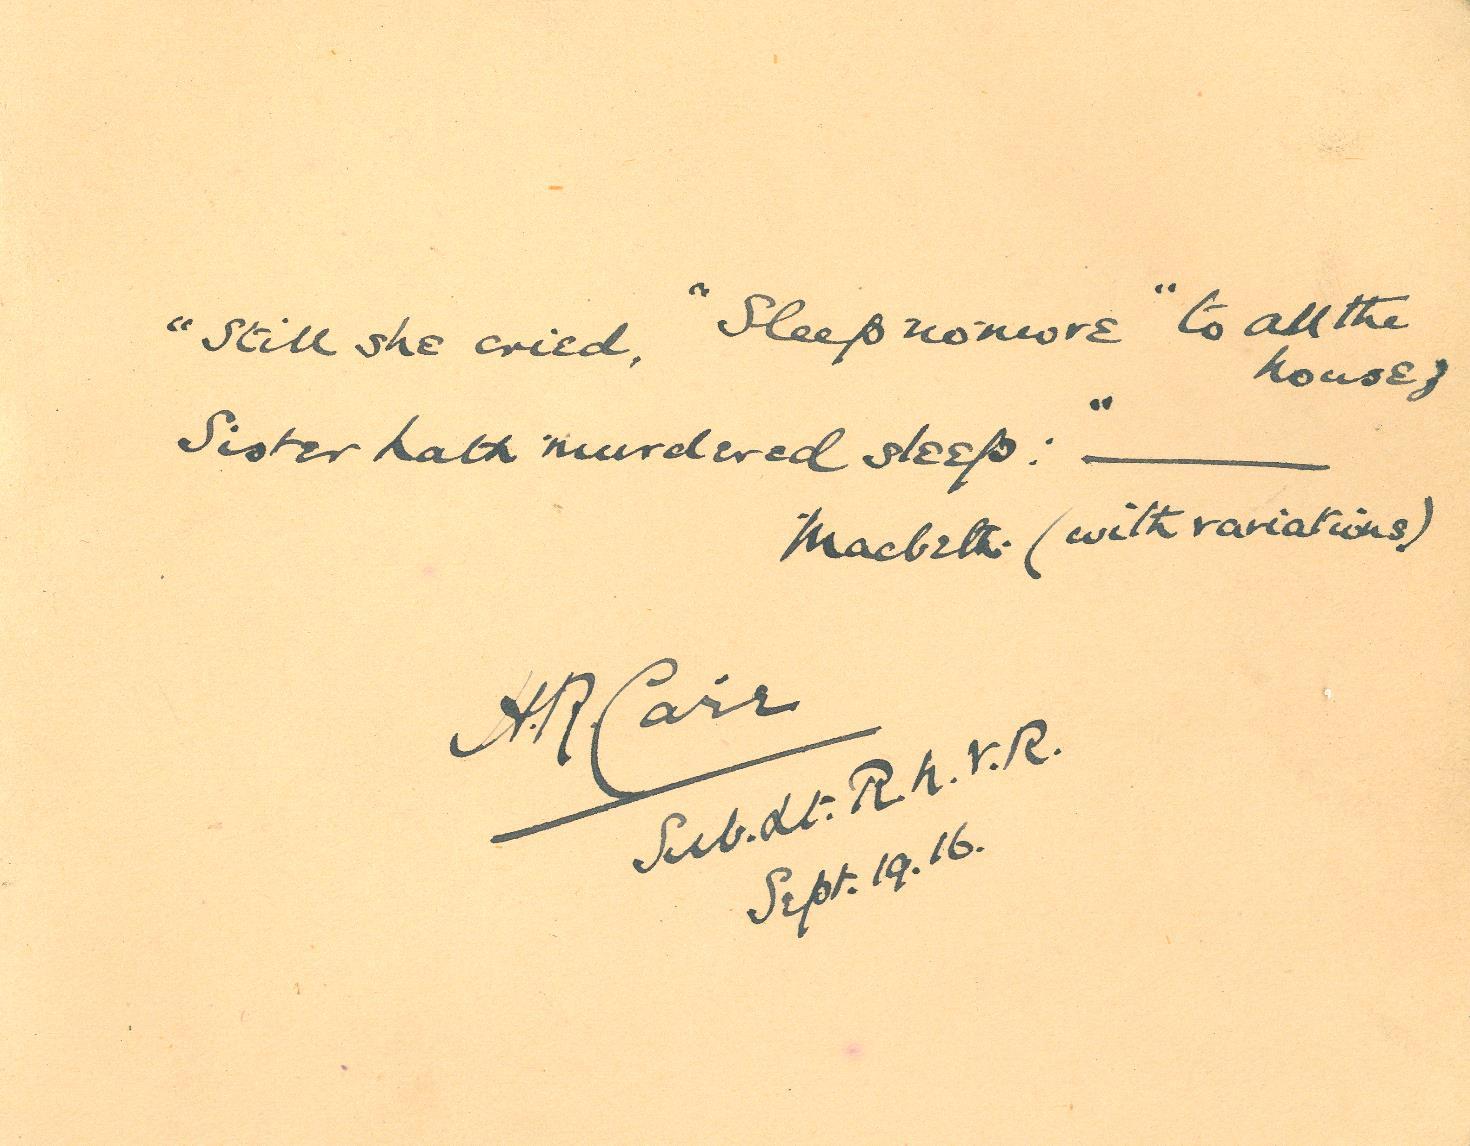 "Still she cried, "Sleep no more" to all the
house;
Sister hath murdered sleep: "
Macbeth. (with variations)
H.R. Carr
Sub. Lt. R.N.V.R.
Sept. 19. 16.